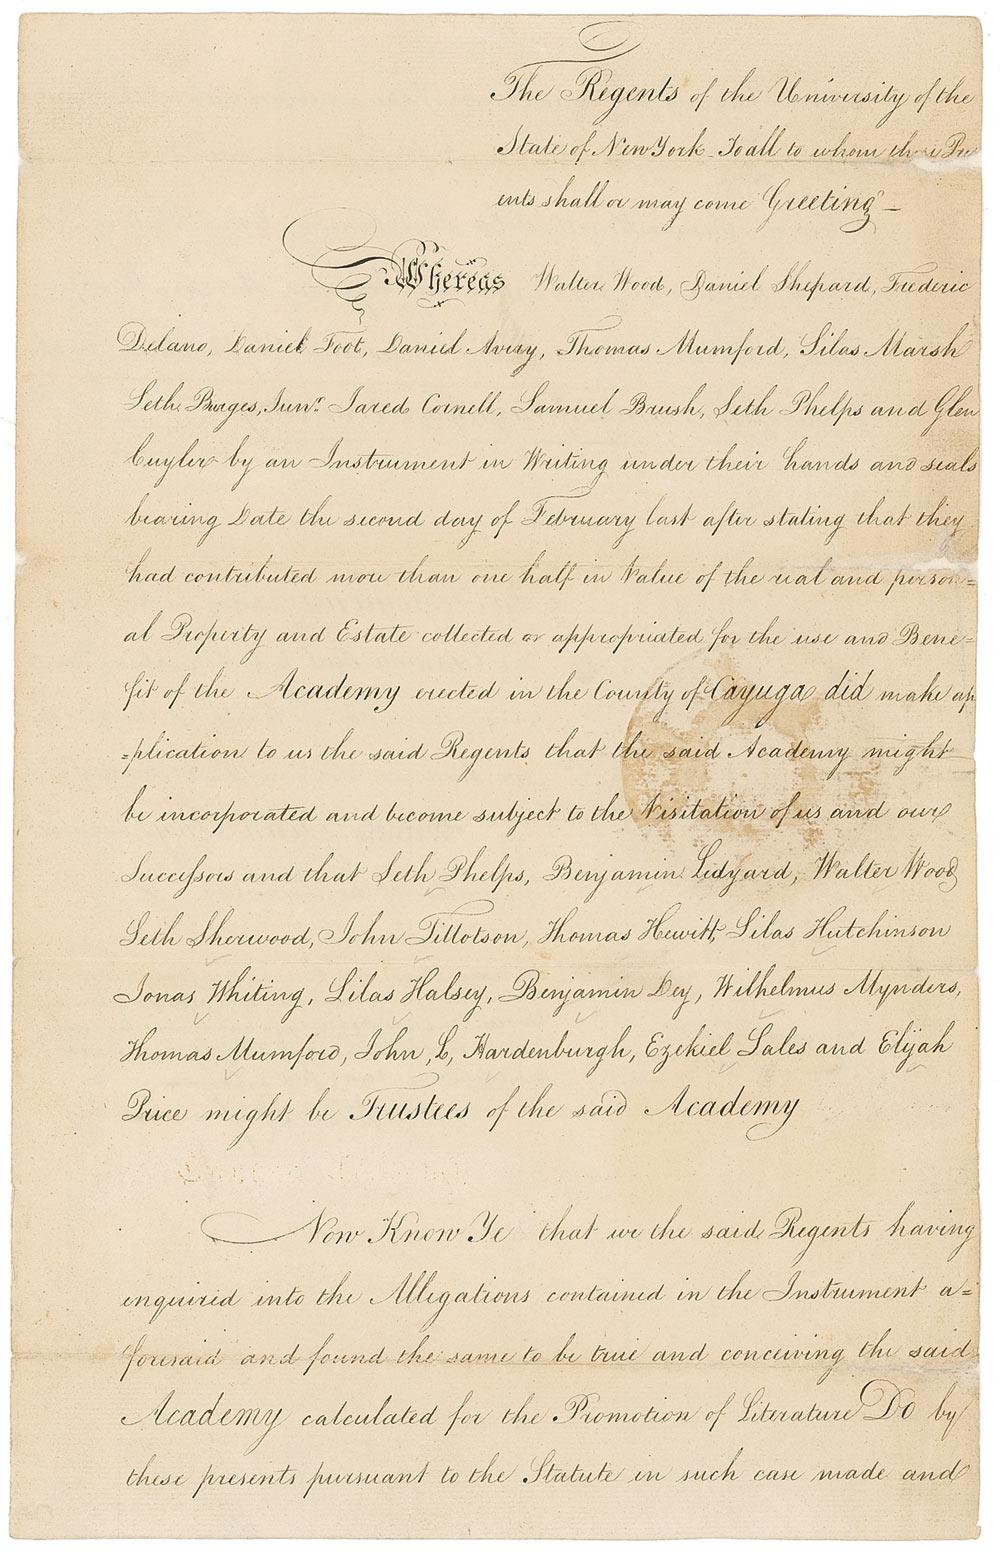 The Regents of the University of the
State of New York To all to whom these Pre
ents shall or may come Greeting –
Whereas Walter Wood, Daniel Shepard, Frederic
Delano, Daniel Foot, Daniel Avery, Thomas Mumford, Silas Marsh
Seth Burges, Junr. Jared Cornell, Samuel Brush, Seth Phelps and Glen
Cuyler by an Instrument in Writing under their hands and seals
bearing Date the second day of February last after stating that they
had contributed more than one half in Value of the real and person=
al Property and Estate collected or appropriated for the use and Bene=
fit of the Academy erected in the County of Cayuga did make ap
=plication to us the said Regents that the said Academy might
be incorporated and become subject to the Visitation of us and our
Successors and that Seth Phelps, Benjamin Ledyard, Walter Wood
Seth Sherwood, John Tillotson, Thomas Hewitt, Silas Hutchinson
Jonas Whiting, Silas Halsey, Benjamin Dey, Wilhelmus Mynders,
Thomas Mumford, John, L, Hardenburgh, Ezekiel Sales and Elijah
Price might be Trustees of the said Academy
Now Know Ye that we the said Regents having
enquired into the Allegations contained in the Instrument a=
foresaid and found the same to be true and conceiving the said
Academy calculated for the Promotion of Literature Do by
these presents pursuant to the Statute in such case made and